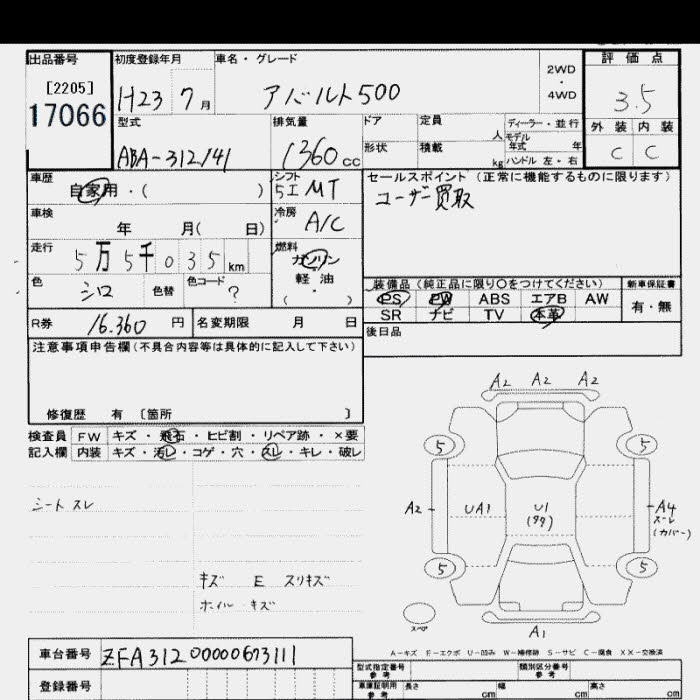 出品番号
[2205]
17066
初度登録年月
H23 7 月
車名・グレード
アバルト500
2WD
・
4WD
評価点
3.5
外装 内装
C C
型式
ABA-312141
排気量
1360 cc
ドア
定員
人
ディーラー・並行
モデル
年式 年
形状
積載
kg
ハンドル 左・右
車歴
自家用・( )
シフト
5工MT
セールスポイント (正常に機能するものに限ります)
ユーザー買取
車検
年 月( 日)
冷房
A/C
走行
5万5千035km
燃料
ガソリン
軽油
( )
色
シロ
色替
色コード
?
装備品 (純正品に限り○をつけてください)
新車保証書
PS PW ABS エアB AW
SR ナビ TV 本革
有・無
R券
16.360 円
名変期限 月 日
後日品
注意事項申告欄 (不具合内容等は具体的に記入して下さい)
修復歴 有 〔箇所 〕
検査員
記入欄
FW キズ・飛石・ヒビ割・リペア跡・×要
内装 キズ・汚レ・コゲ・穴・スレ・キレ・破レ
シートスレ
キズ E スリキズ
ホイル キズ
A2 A2 A2
5 5
A2 UA1 U1 A4
スーレ
(カバー)
5 5
スペア
A1
A-キズ E-エクボ U-凹ミ W-補修跡 S-サビ C-腐食 XX-交換済
車台番号
ZFA31200000673111
登録番号
型式指定番号
参考
類別区分番号
参考
車庫証明用
参考
長さ cm
幅 cm
高さ cm